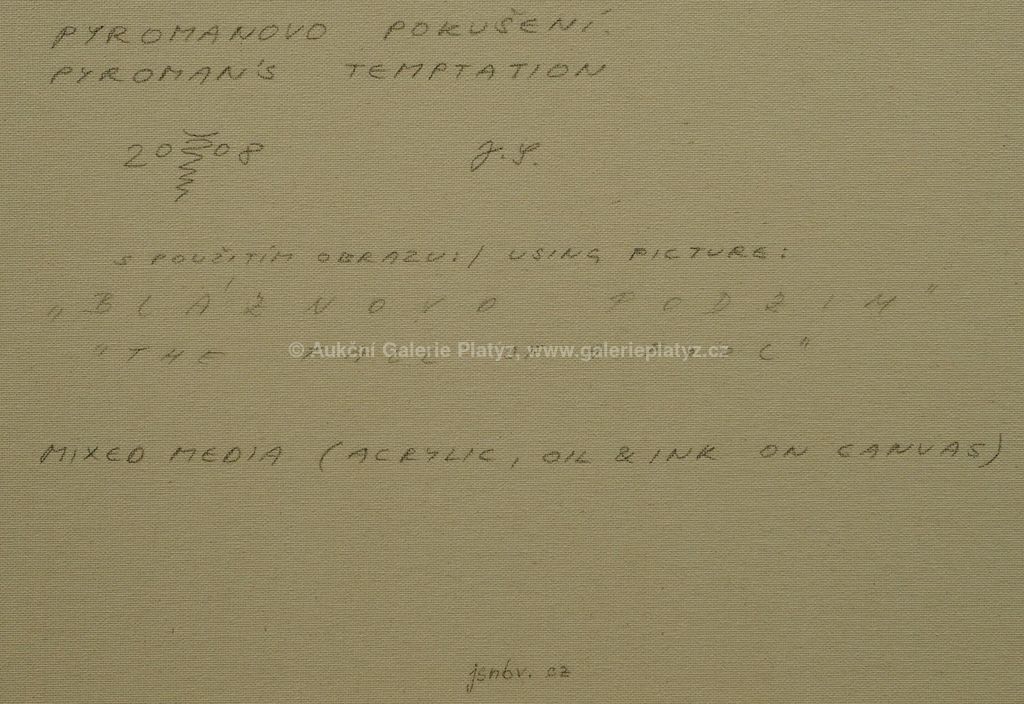 PYROMANOVO POKUŠENÍ.
PYROMAN'S TEMPTATION
2008 J.S.
S POUŽITÍM OBRAZU:/ USING PICTURE:
„BLÁZNOVO PODZIM"
"THE FALL OF FOOL"
© Aukční Galerie Platýz, www.galerieplatyz.cz
MIXED MEDIA (ACRYLIC, OIL & INK ON CANVAS)
jsnbv.cz